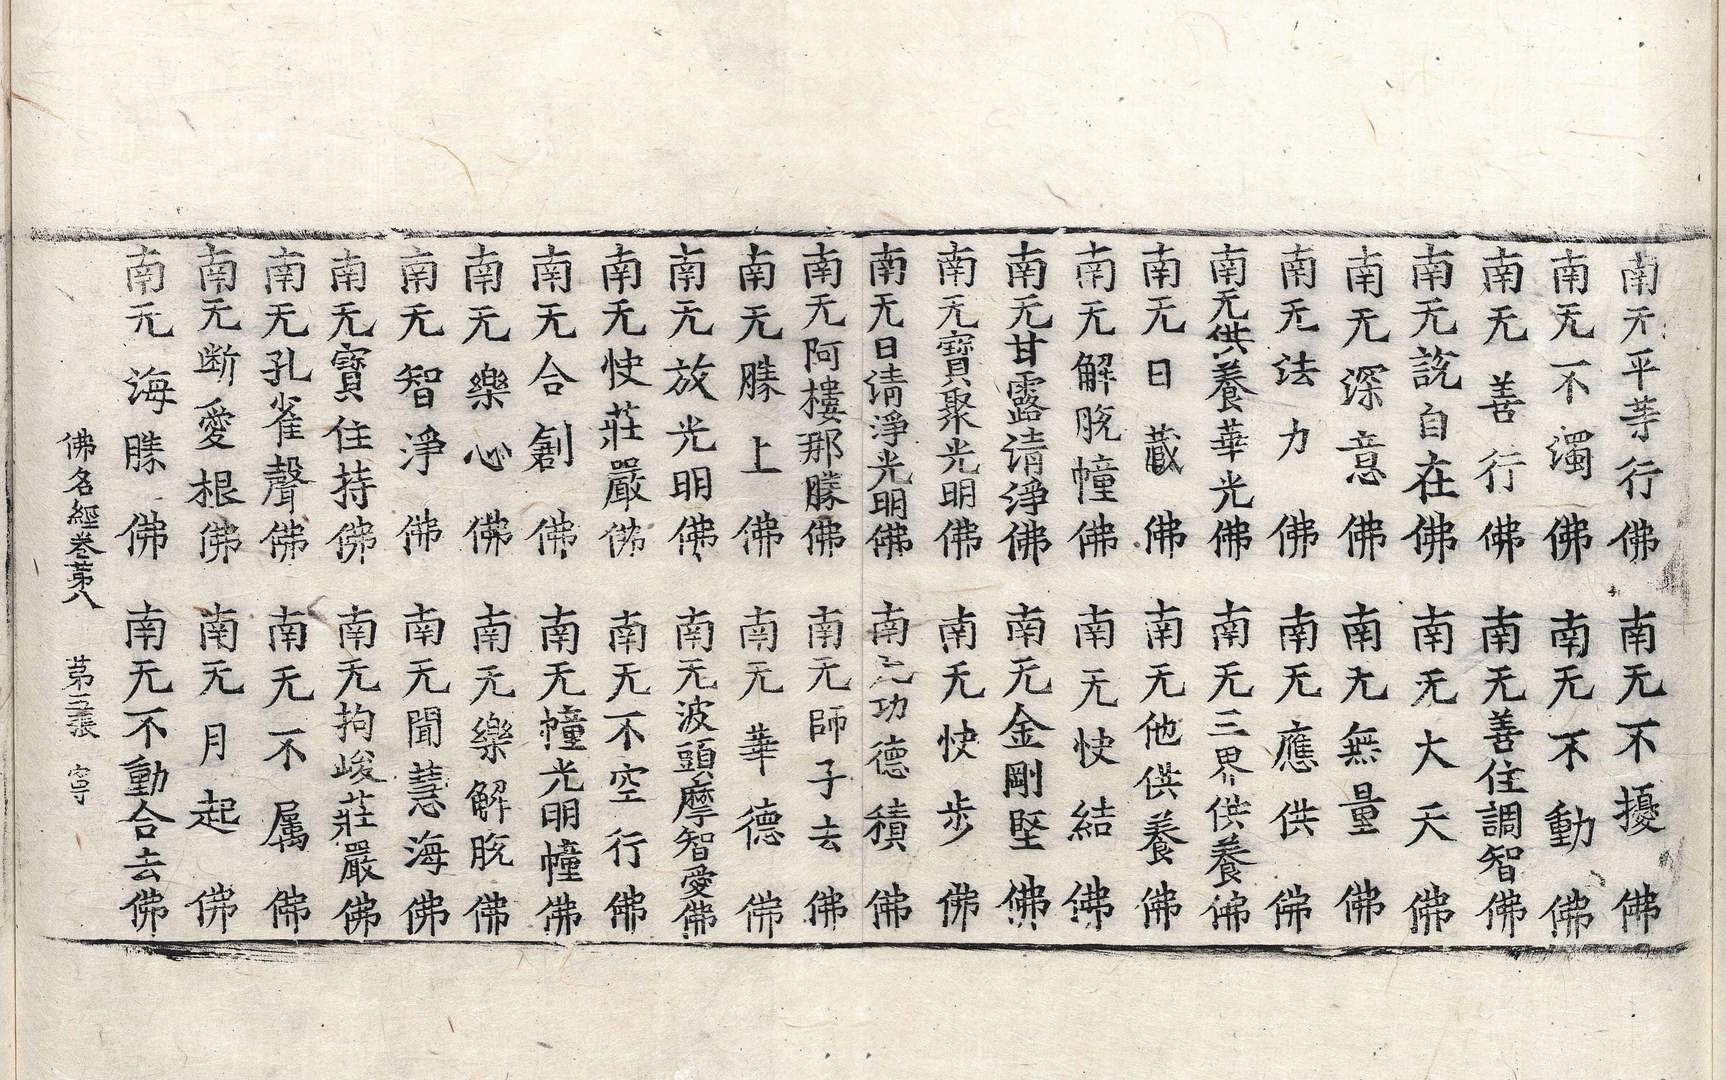 南无平等行佛 南无不擾佛
南无不濁佛 南无不動佛
南无善行佛 南无善住調智佛
南无說自在佛 南无大天佛
南无深意佛 南无無量佛
南无法力佛 南无應供佛
南无供養華光佛 南无三界供養佛
南无日藏佛 南无他供養佛
南无解脫幢佛 南无快結佛
南无甘露清淨佛 南无金剛堅佛
南无寶聚光明佛 南无快步佛
南无日清淨光明佛 南无功德積佛
南无阿樓那勝佛 南无師子去佛
南无勝上佛 南无華德佛
南无放光明佛 南无波頭摩智愛佛
南无快莊嚴佛 南无不空行佛
南无合劒佛 南无幢光明幢佛
南无樂心佛 南无樂解脫佛
南无智淨佛 南无聞慧海佛
南无寶住持佛 南无拘峻莊嚴佛
南无孔雀聲佛 南无不属佛
南无断愛根佛 南无月起佛
南无海勝佛 南无不動合去佛
佛名經卷第八 第五張 寧